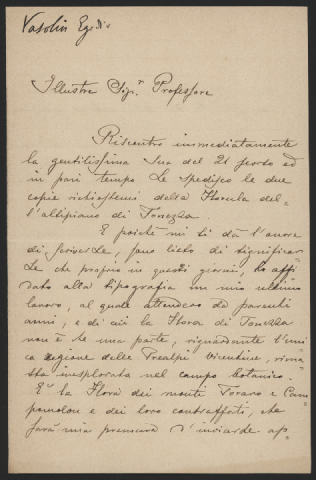 Vasolin Egidio
Illustre Sig.r Professore
Riscontro immediatamente
la gentilissima Sua del 21 ed
in pari tempo Le spedisco le due
copie richiestemi della Florula del-
l'altipiano di Tonezza.
E poichè mi si dà l'onore
di scriverLe, sono lieto di significar-
Le che proprio in questi giorni, ho affi-
dato alla tipografia un mio ultimo
lavoro, al quale attendevo da parecchi
anni, e di cui la Flora di Tonezza
non è che una parte, riguardante l'uni-
ca regione delle Prealpi Vicentine, rima-
sta inesplorata nel campo botanico.
E' la Flora dei monti Toraro e Cam-
pomolon e dei loro contrafforti, che
sarà mia premura d'inviarLe ap-